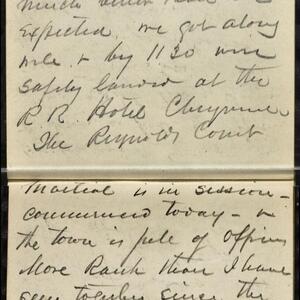 much better than
expected. we got along
well & by 11 30 were
safely landed at the
R R. Hotel Cheyenne
The Reynolds Court
Martial is in session -
commenced today - &
the town is full of officers
More Rank than I have
seen together since the